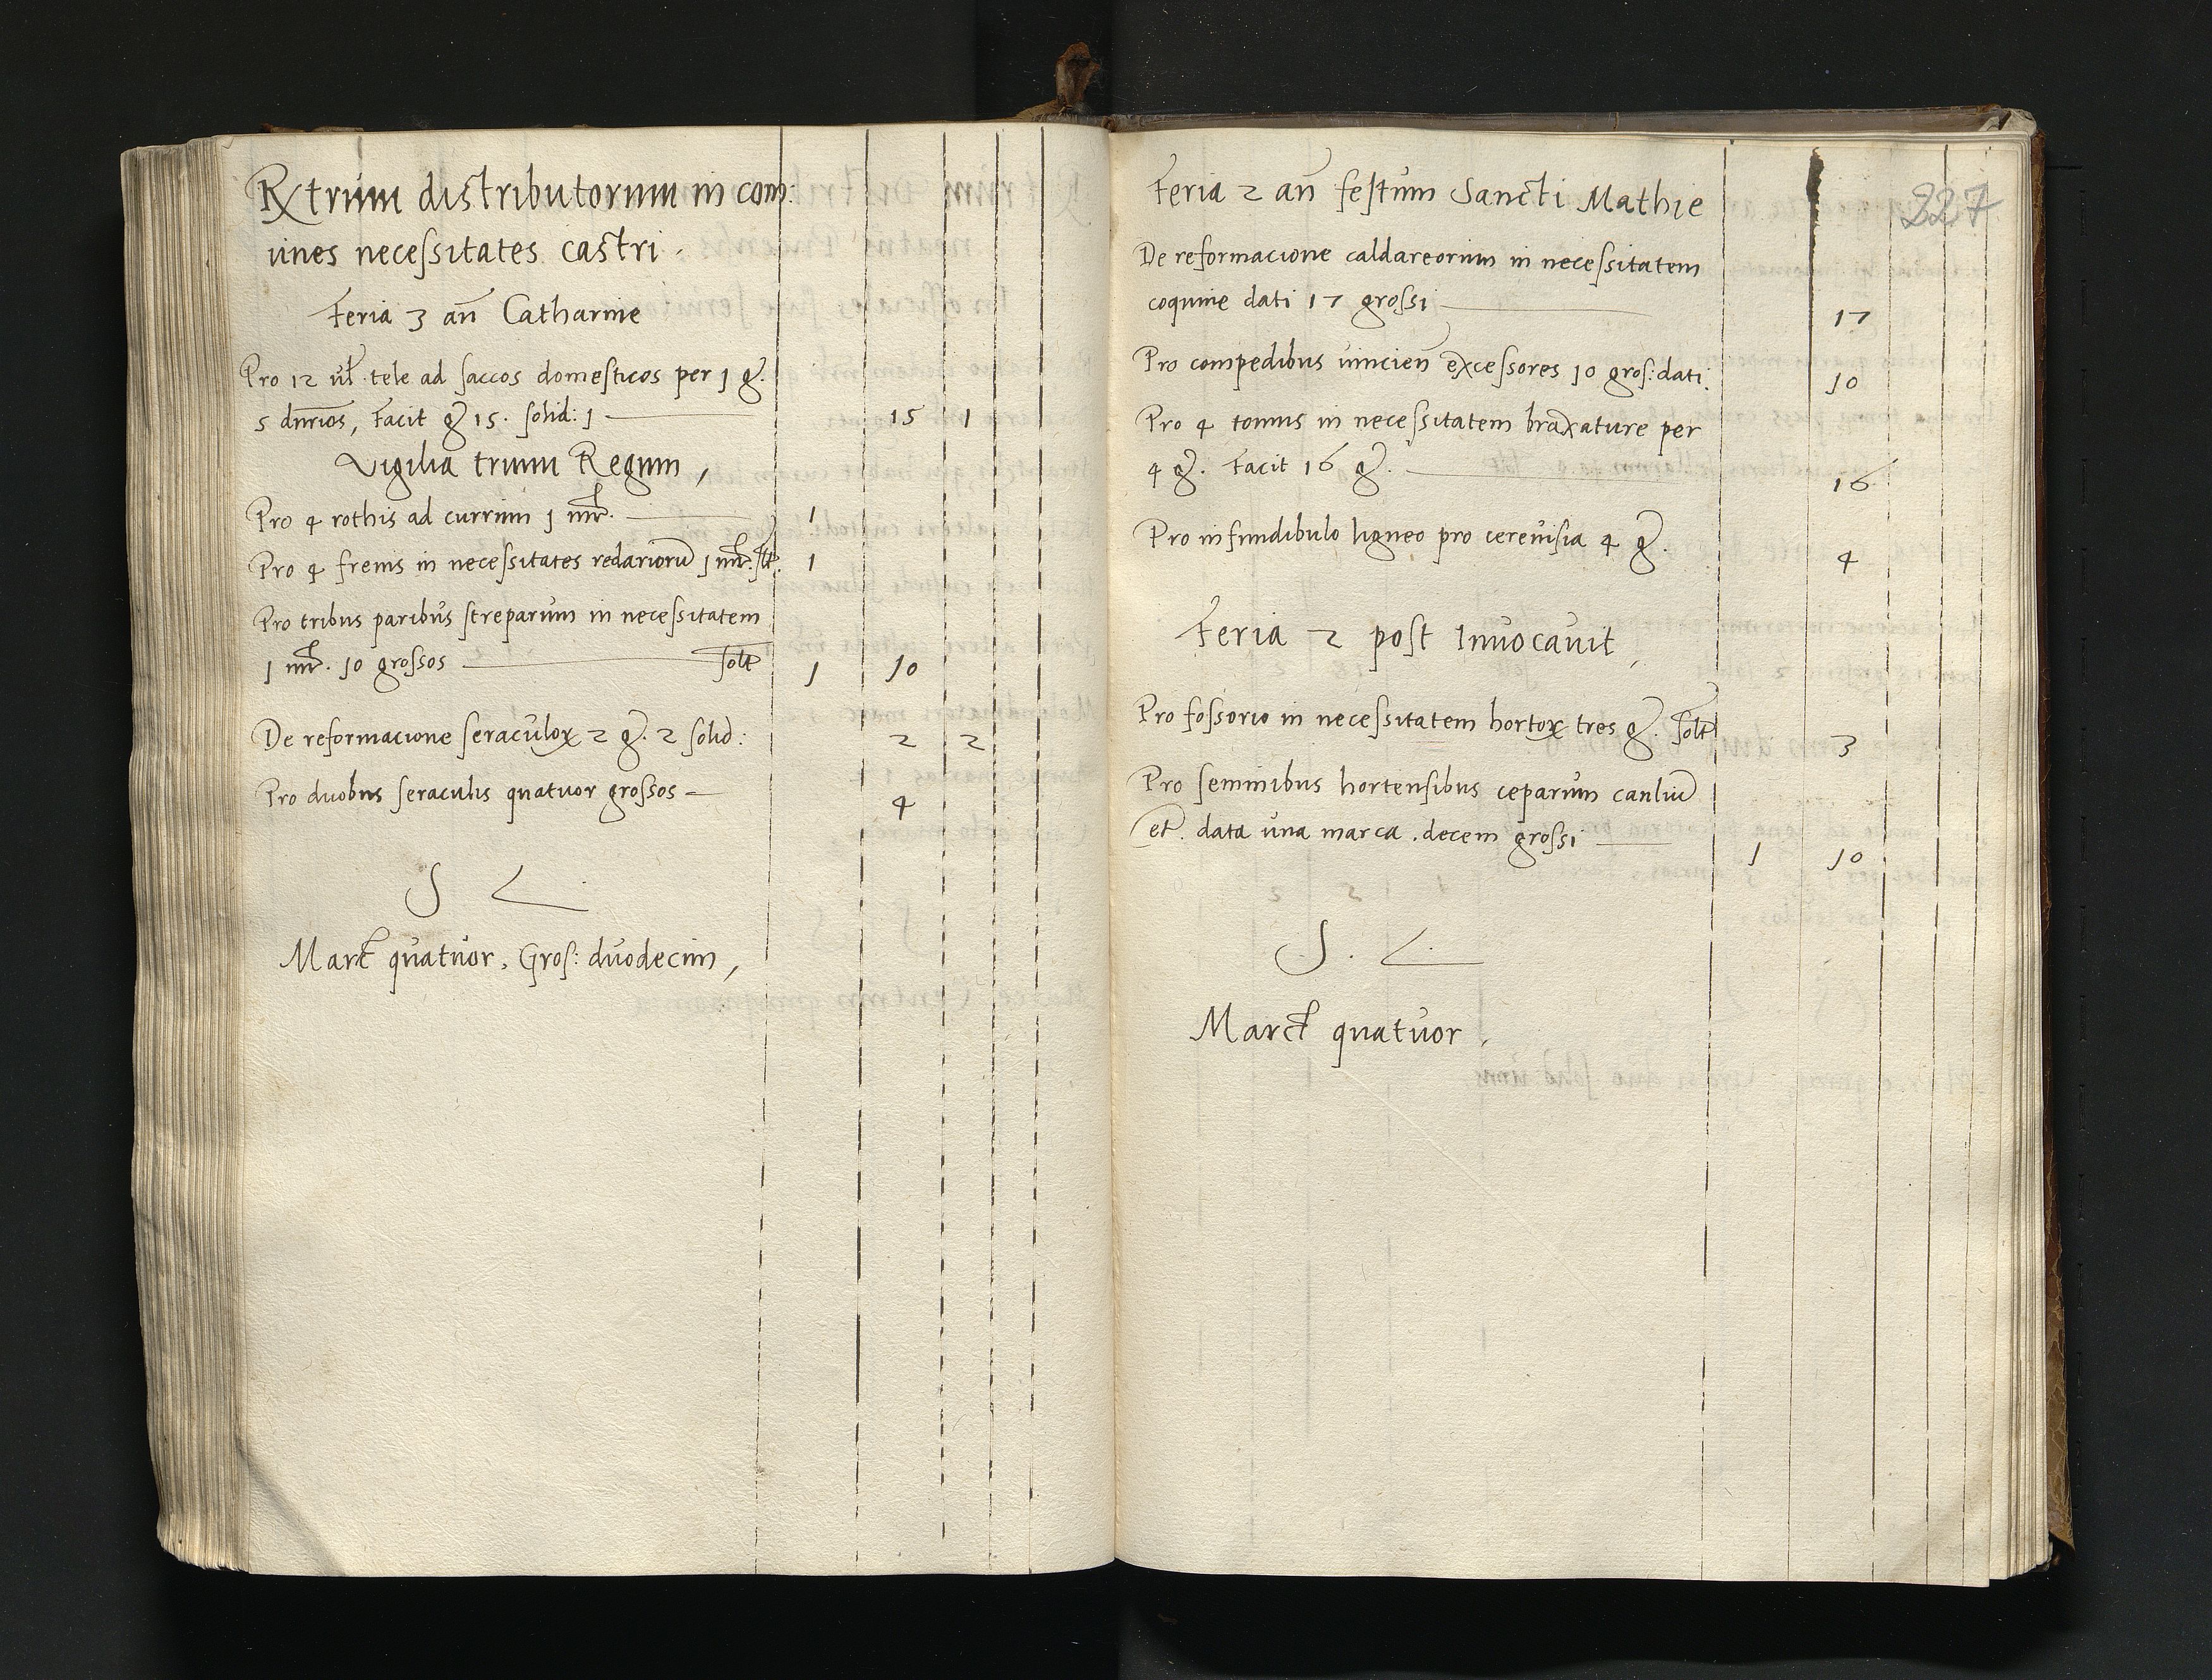 Rxtrum distributorum in com:
unes necessitates castri.
Feria 3 an̄ Catharine
Pro 12 ul. tele ad saccos domesticos per 1 g.
5 dnrios, Facit g 15. solid: 1 15 1
Vigilia trium Regum,
Pro 4 rothis ad currum 1 mr. 1
Pro 4 frenis in necessitates redariorū 1 mr. slt. 1
Pro tribus paribus streparum in necessitatem
1 mr. 10 grossos solt 1 10
De reformacione seraculoꝝ 2 g. 2 solid: 2 2
Pro duobus seraculis quatuor grossos 4
S L
Marc quatuor. Gros: duodecim,
227
Feria 2 an̄ festum Sancti Mathie
De reformacione caldareorum in necessitatem
coquine dati 17 grossi 17
Pro compedibus vincien̄ excessores 10 gros: dati. 10
Pro 4 tonnis in necessitatem braxature per
4 g. Facit 16 g. 16
Pro infundibulo ligneo pro cerevisia 4 g. 4
Feria 2 post Invocavit,
Pro fossorio in necessitatem hortoꝝ tres g. solt 3
Pro seminibus hortensibus ceparum cauliū
etc. data una marca. decem grossi 1 10
S. L
Marc quatuor,